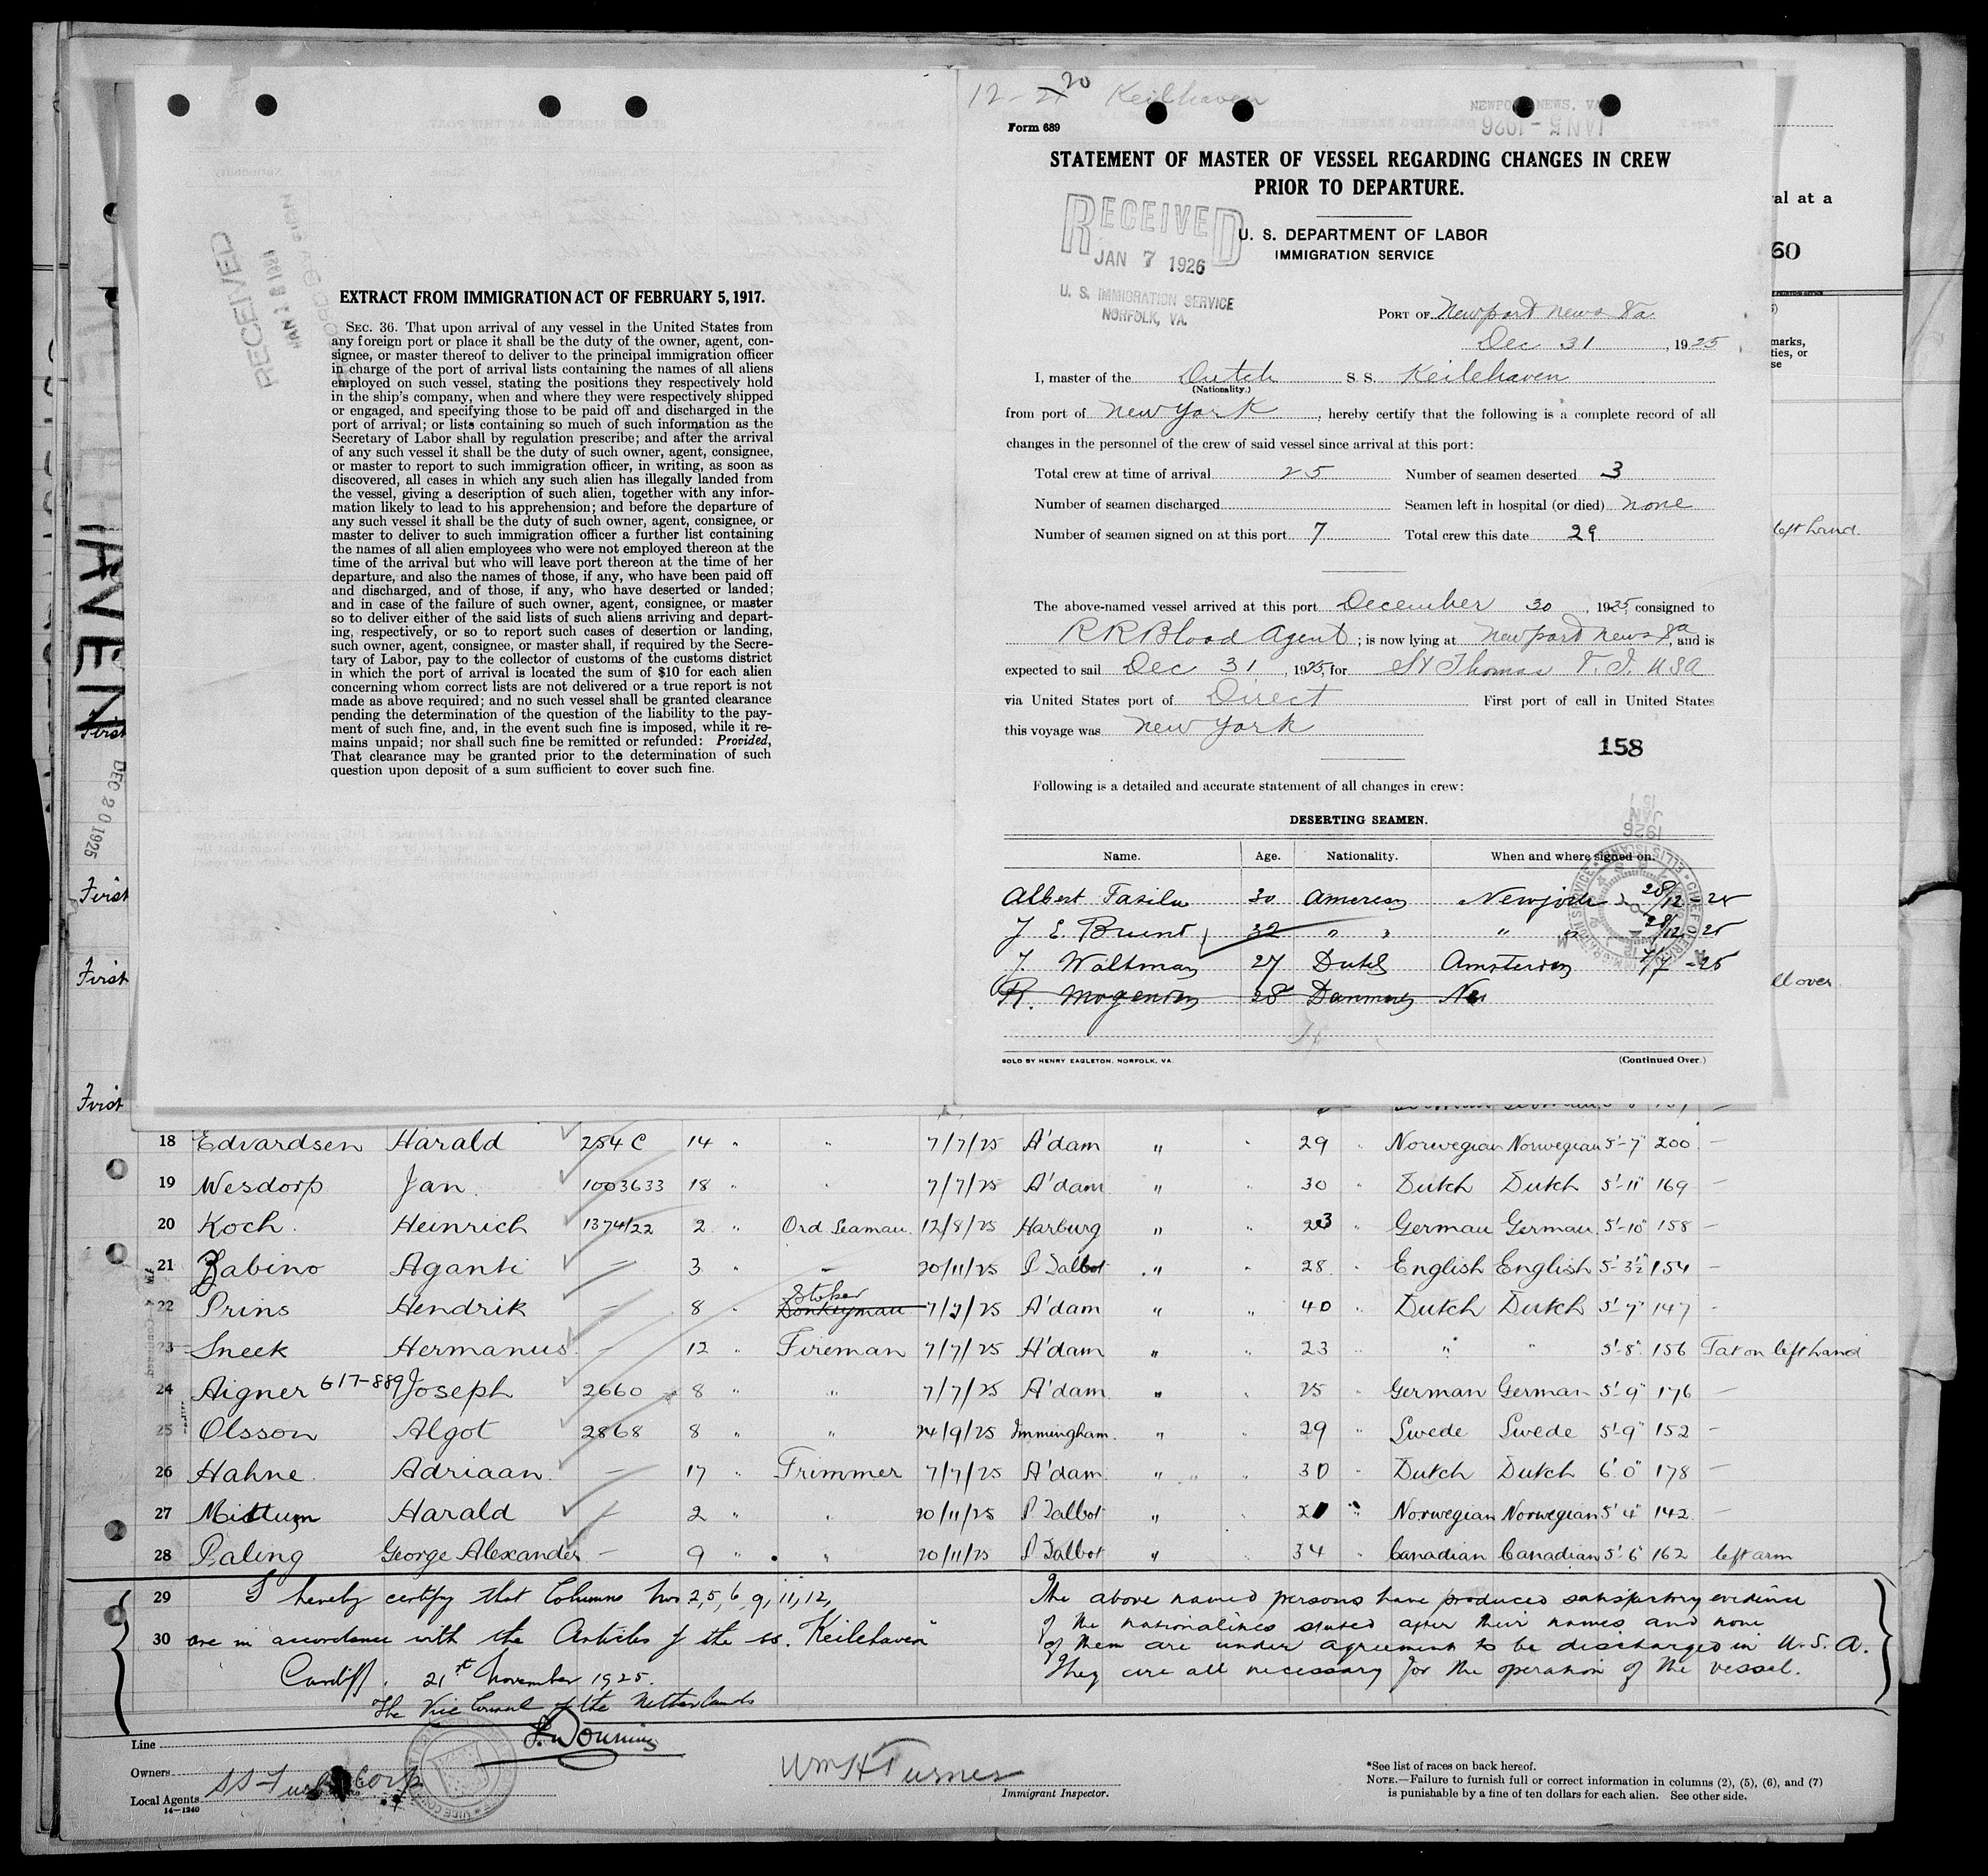 EXTRACT FROM IMMIGRATION ACT OF FEBRUARY 5, 1917.
SEC. 36. That upon arrival of any vessel in the United States from
any foreign port or place it shall be the duty of the owner, agent, con-
signee, or master thereof to deliver to the principal immigration officer
in charge of the port of arrival lists containing the names of all aliens
employed on such vessel, stating the positions they respectively hold
in the ship's company, when and where they were respectively shipped
or engaged, and specifying those to be paid off and discharged in the
port of arrival; or lists containing so much of such information as the
Secretary of Labor shall by regulation prescribe; and after the arrival
of any such vessel it shall be the duty of such owner, agent, consignee,
or master to report to such immigration officer, in writing, as soon as
discovered, all cases in which any such alien has illegally landed from
the vessel, giving a description of such alien, together with any infor-
mation likely to lead to his apprehension; and before the departure of
any such vessel it shall be the duty of such owner, agent, consignee, or
master to deliver to such immigration officer a further list containing
the names of all alien employees who were not employed thereon at the
time of the arrival but who will leave port thereon at the time of her
departure, and also the names of those, if any, who have been paid off
and discharged, and of those, if any, who have deserted or landed;
and in case of the failure of such owner, agent, consignee, or master
so to deliver either of the said lists of such aliens arriving and depart-
ing, respectively, or so to report such cases of desertion or landing,
such owner, agent, consignee, or master shall, if required by the Secre-
tary of Labor, pay to the collector of customs of the customs district
in which the port of arrival is located the sum of $10 for each alien
concerning whom correct lists are not delivered or a true report is not
made as above required; and no such vessel shall be granted clearance
pending the determination of the question of the liability to the pay-
ment of such fine, and, in the event such fine is imposed, while it re-
mains unpaid; nor shall such fine be remitted or refunded: Provided,
That clearance may be granted prior to the determination of such
question upon deposit of a sum sufficient to cover such fine.
RECEIVED
HAVEN
First
DEC 20 1925
First
First
First
12-21 20 Keilhaven
NEWPORT NEWS, VA
JAN 5-1926
Form 689
STATEMENT OF MASTER OF VESSEL REGARDING CHANGES IN CREW
PRIOR TO DEPARTURE.
RECEIVED
JAN 7 1926
U. S. IMMIGRATION SERVICE
NORFOLK, VA.
U. S. DEPARTMENT OF LABOR
IMMIGRATION SERVICE
PORT OF Newport News Va
Dec 31, 1925
I, master of the Dutch S. S. Keilehaven
(Nationality.)
from port of New York, hereby certify that the following is a complete record of all
changes in the personnel of the crew of said vessel since arrival at this port:
Total crew at time of arrival 25 Number of seamen deserted 3
Number of seamen discharged Seamen left in hospital (or died) none
Number of seamen signed on at this port 7 Total crew this date 29
The above-named vessel arrived at this port December 30, 1925, consigned to
R R Blood Agent; is now lying at Newport News Va, and is
expected to sail Dec 31, 1925, for St Thomas V. I. USA
via United States port of Direct First port of call in United States
this voyage was New York
158
Following is a detailed and accurate statement of all changes in crew:
DESERTING SEAMEN.
Name. Age. Nationality. When and where signed on.
Albert 30 28/12-25
J E. Brunt 32 " " " " 28/12 25
J. Waltman 27 Dutch Amsterdam 7/7-25
R. Mogensen 28 Danmark Ne
SOLD BY HENRY EAGLETON, NORFOLK, VA. (Continued Over.)
val at a
60
marks,
ties, or
se
left hand.
ll over
18 Edvardsen Harald 254 C 14 " " 7/7/25 A'dam " " 29 " Norwegian Norwegian 5'-7" 200 —
19 Wesdorp Jan. 1003633 18 " " 7/7/25 A'dam " " 30 " Dutch Dutch 5'-11" 169 —
20 Koch. Heinrich 1374/22 2 " Ord. Seaman. 12/8/25 Harburg " " 23 " German German 5'-10" 158 —
21 Zabino Aganti — 3 " " 20/11/25 P Talbot " " 28 " English English 5'-3½" 154 —
22 Prins Hendrik — 8 " Stoker Donkeyman 7/7/25 A'dam " " 40 " Dutch Dutch 5'-7" 147 —
23 Sneek Hermanus — 12 " Fireman 7/7/25 A'dam " " 23 " " " 5'-8" 156 Tat on left hand
24 Aigner 617-889 Joseph 2660 8 " " 7/7/25 A'dam " " 25 " German German 5'-9" 176 —
25 Olsson Algot 2868 8 " " 24/9/25 Immingham. " " 29 " Swede Swede 5'-9" 152 —
26 Hahne. Adriaan. — 17 " Trimmer 7/7/25 A'dam " " 30 " Dutch Dutch 6'0" 178 —
27 Harald — 2 " " 20/11/25 P Talbot " " 20 " Norwegian Norwegian 5'4" 142 —
28 Paling George Alexander — 9 " " 20/11/25 P Talbot " " 34 " Canadian Canadian 5'-6" 162 left arm
29 I hereby certify that Columns Nos 2, 5, 6, 9, 11, 12,
30 are in accordance with the Articles of the ss. "Keilehaven"
Cardiff. 21st November 1925.
The Vice Consul of the Netherlands
The above named persons have produced satisfactory evidence
of the nationalities stated after their names and none
of them are under agreement to be discharged in U.S.A.
They are all necessary for the operation of the vessel.
Line
Owners
Local Agents
14—1240
Wm H Turner
Immigrant Inspector.
*See list of races on back hereof.
NOTE.—Failure to furnish full or correct information in columns (2), (5), (6), and (7)
is punishable by a fine of ten dollars for each alien. See other side.